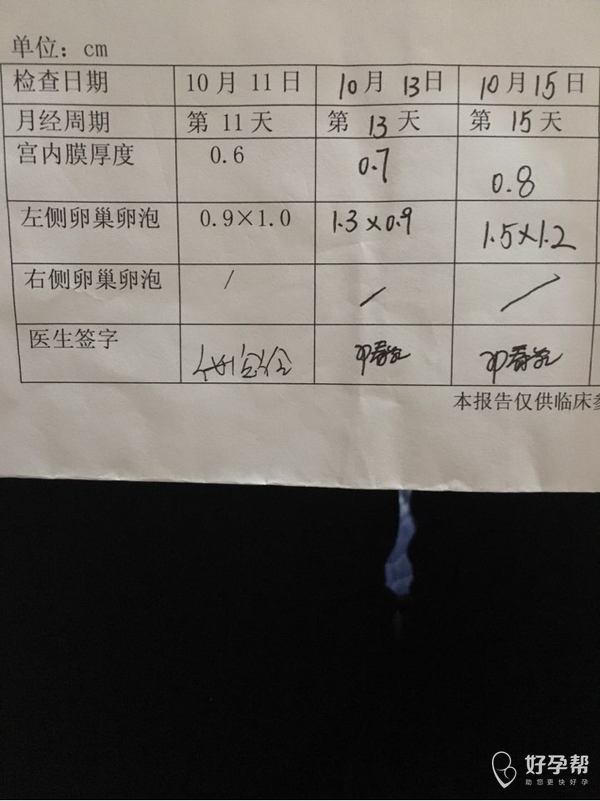 单位：cm
检查日期 10月 11日 10月 13日 10月15日
月经周期 第 11天 第 13 天 第 15天
宫内膜厚度 0.6 0.7 0.8
左侧卵巢卵泡 0.9×1.0 1.3×0.9 1.5×1.2
右侧卵巢卵泡 / / /
医生签字
本报告仅供临床
好孕帮
助您更快好孕